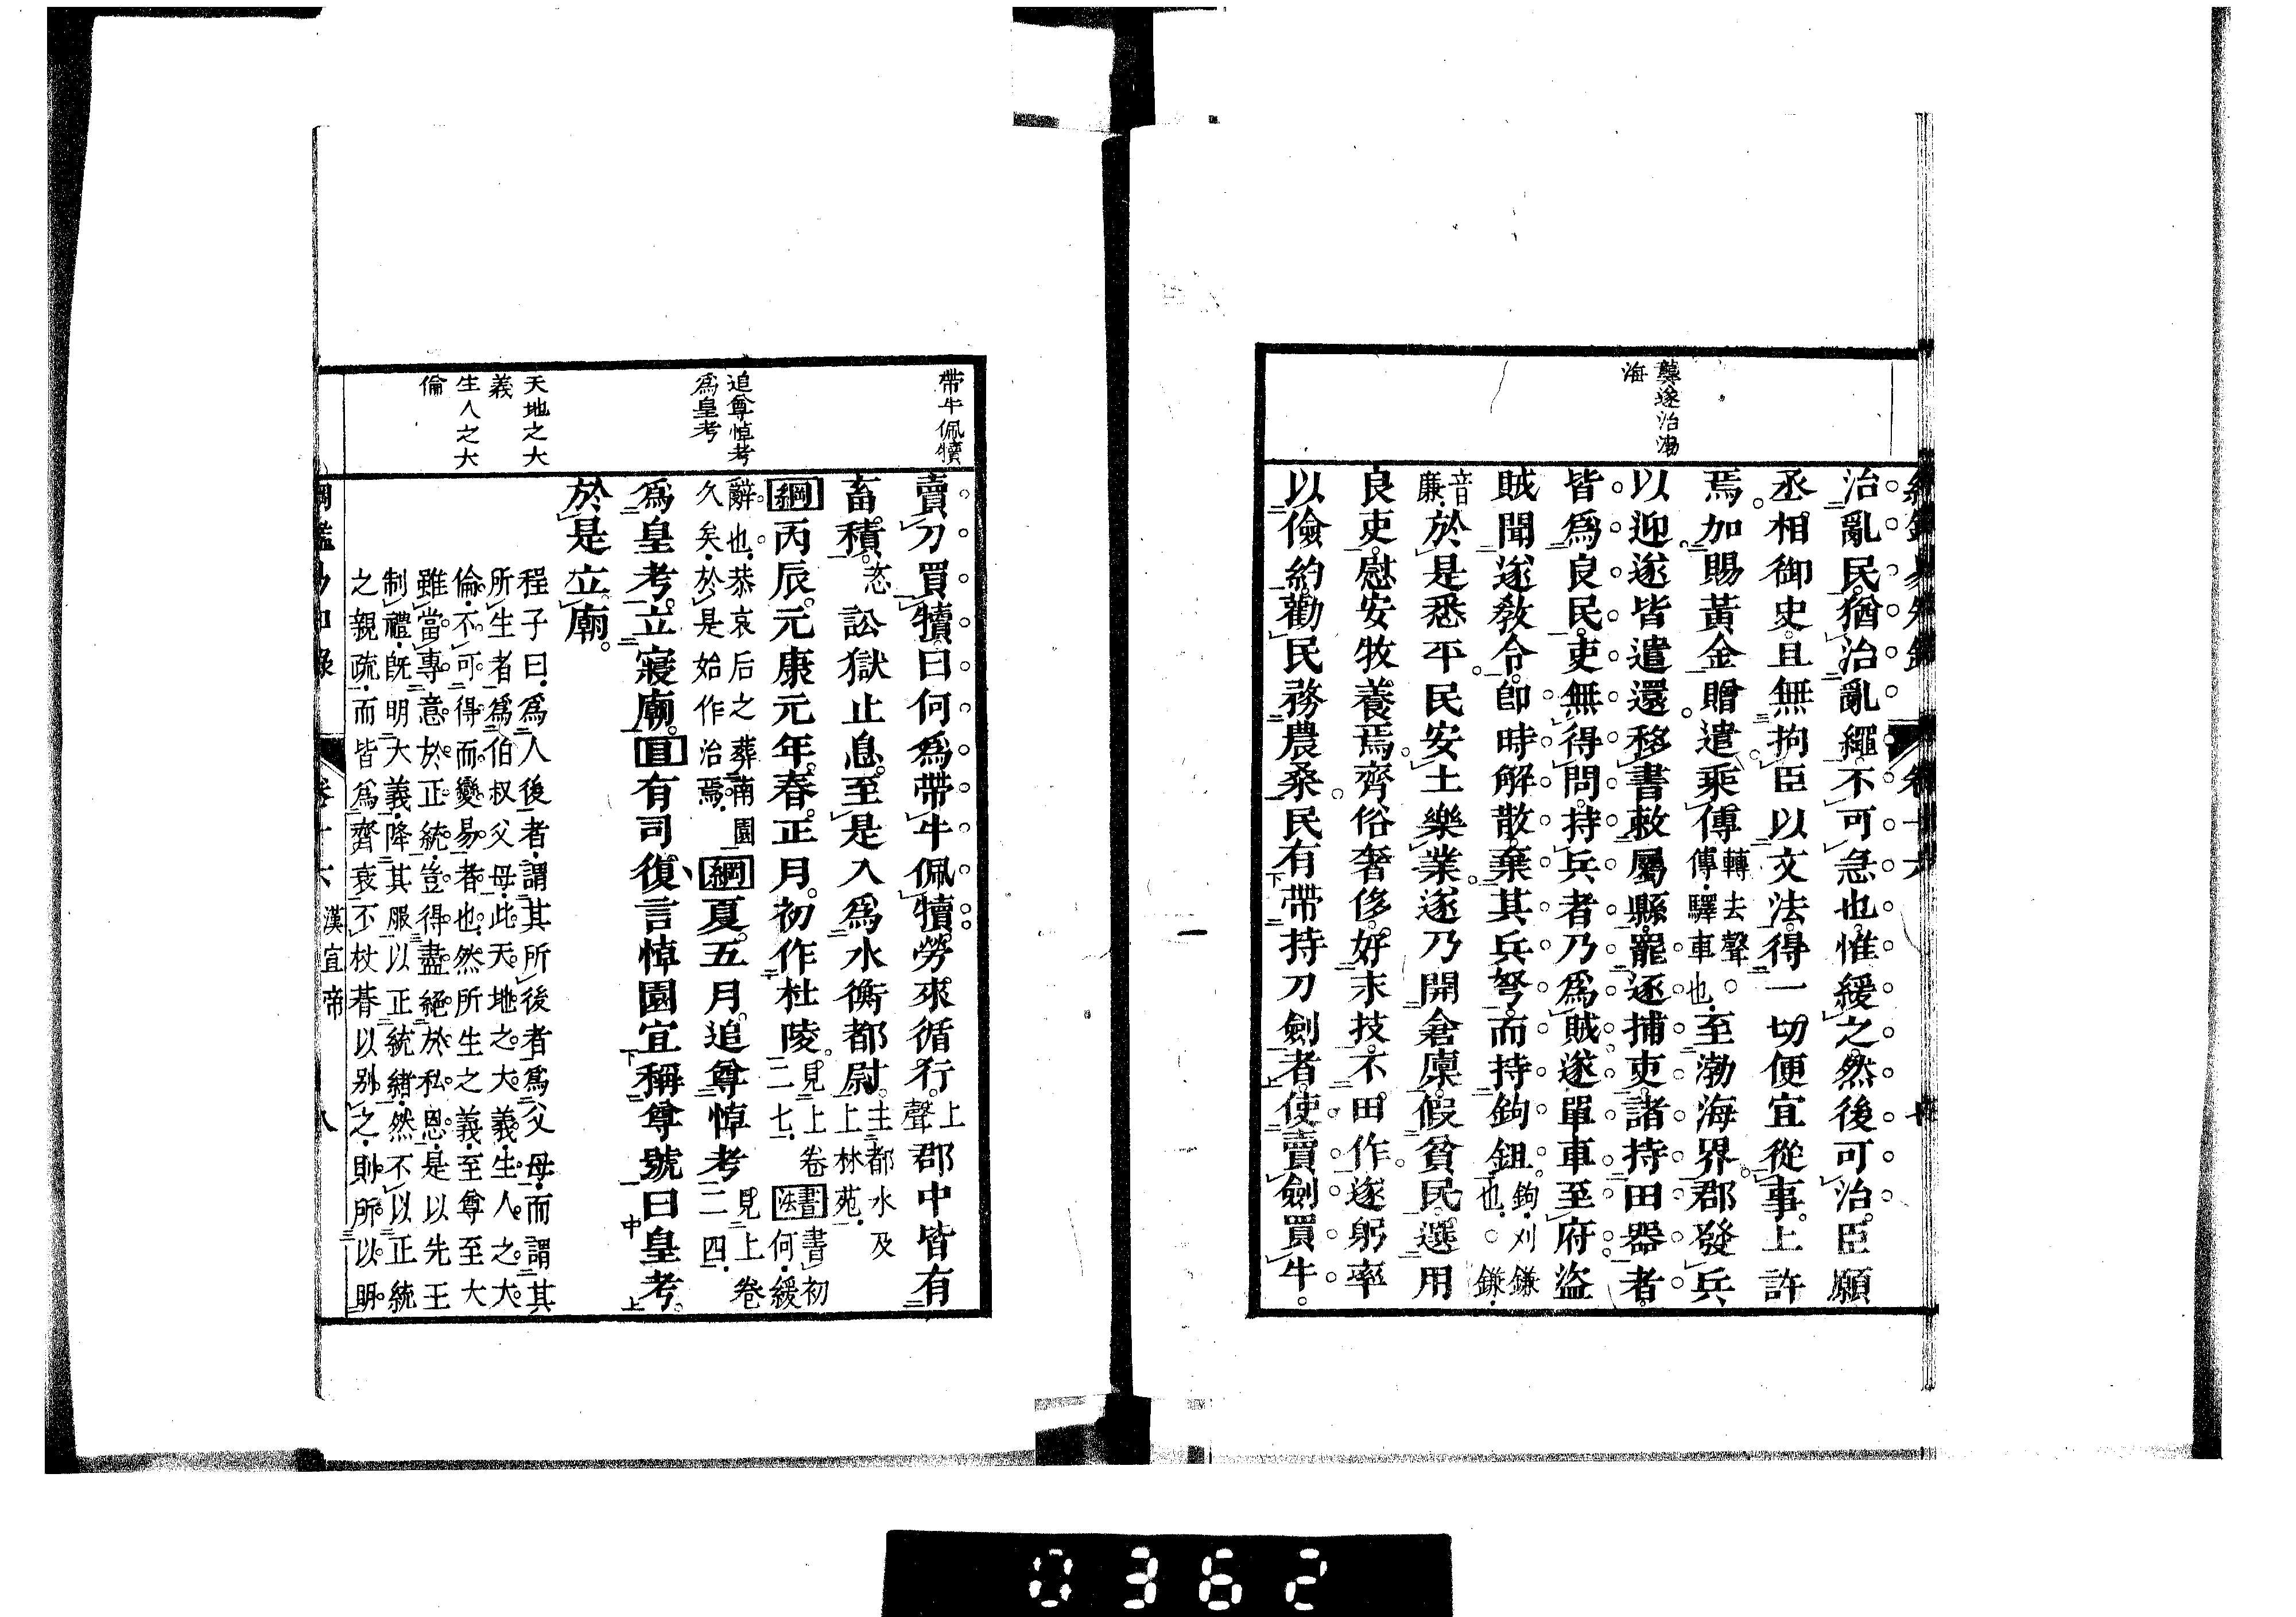 龔遂治渤
海
治亂民猶治亂繩不可急也惟緩之然後可治臣願
丞相御史且無拘臣以文法得一切便宜從事上許
焉加賜黃金贈遣乘傳轉去聲傳驛車也至渤海界郡發兵
以迎遂皆遣還移書敕屬縣罷逐捕吏諸持田器者
皆爲良民吏無得問持兵者乃爲賊遂單車至府盜
賊聞遂敎令卽時解散棄其兵弩而持鉤鉏鉤刈鎌也鎌
音廉於是悉平民安土樂業遂乃開倉廩假貧民選用
良吏慰安牧養焉齊俗奢侈好末技不田作遂躬率
以儉約勸民務農桑民有帶持刀劍者使賣劍買牛
帶牛佩犢
追尊悼考
爲皇考
天地之大
義
生人之大
倫
賣刀買犢曰何爲帶牛佩犢勞來循行上聲郡中皆有
畜積訟獄止息至是入爲水衡都尉主都水及上林苑
綱丙辰元康元年春正月初作杜陵見上卷二七書法書初何緩
辭也恭哀后之葬南園久矣於是始作治焉綱夏五月追尊悼考見上卷二四
爲皇考立寢廟目有司復言悼園宜稱尊號曰皇考
於是立廟
程子曰爲人後者謂其所後者爲父母而謂其
所生者爲伯叔父母此天地之大義生人之大
倫不可得而變易者也然所生之義至尊至大
雖當專意於正統豈得盡絕於私恩是以先王
制禮旣明大義降其服以正統緒然不以正統
之親疏而皆爲齊衰不杖朞以別之則所以明
漢宣帝